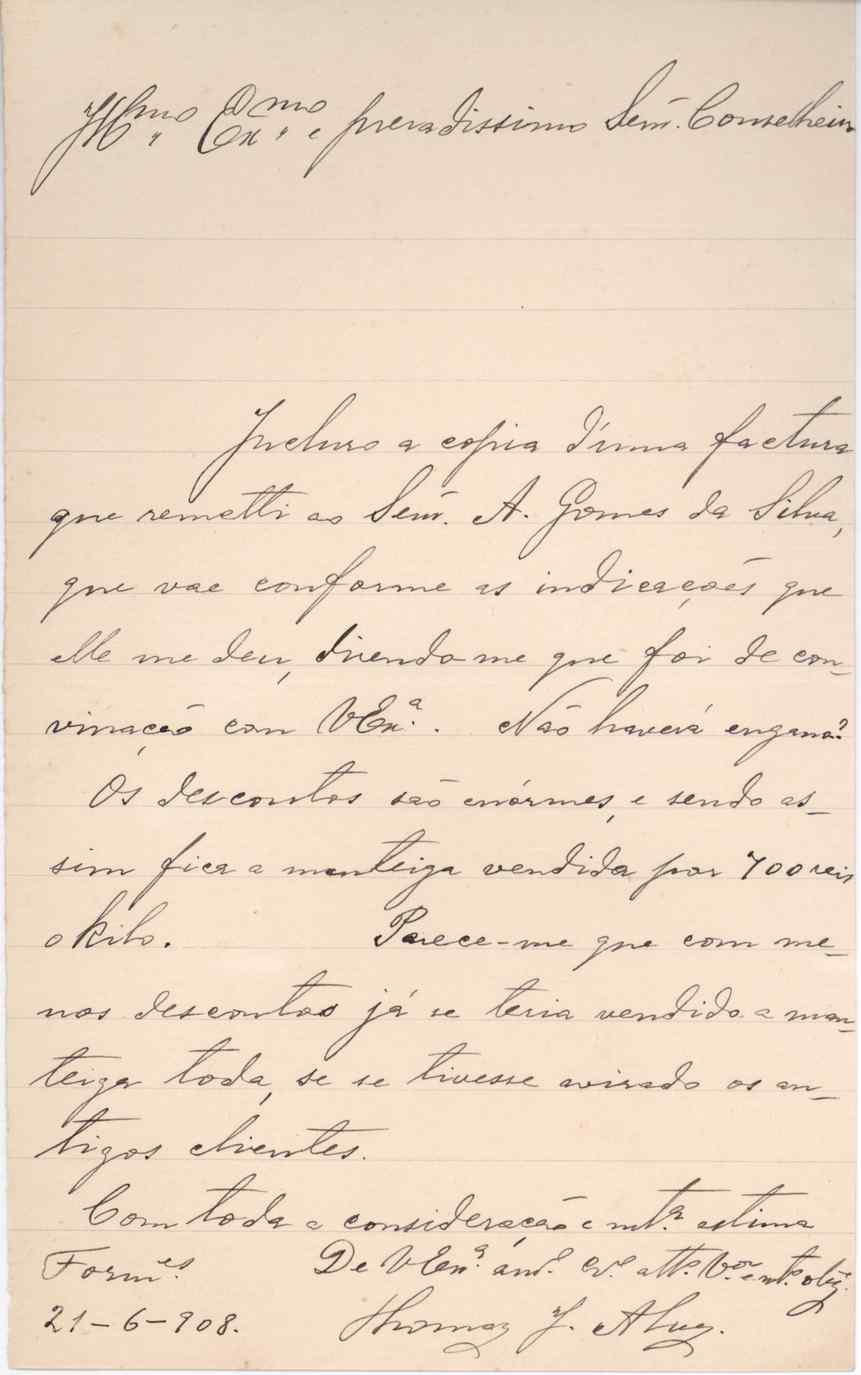 Illmo. Exmo. e presadissimo Senr. Conselheiro
Incluso a copia d'uma factura
que remetti ao Senr. A. Gomes da Silva,
que vae conforme as indicações que
elle me deu, disendo-me que foi de con-
vinação com VExª. Não haverá engano?
Os descontos são enórmes, e sendo as-
sim fica a manteiga vendida por 700 reis
o kilo. Parece-me que com me-
nos descontos já se teria vendido a man-
teiga toda, se se tivesse avisado os an-
tigos clientes.
Com toda a consideração e mtª. estima
Formes. De VExª. amº. crº. attº. Vor. e mtº. obgº.
21-6-908. Thomaz J. Alvz.